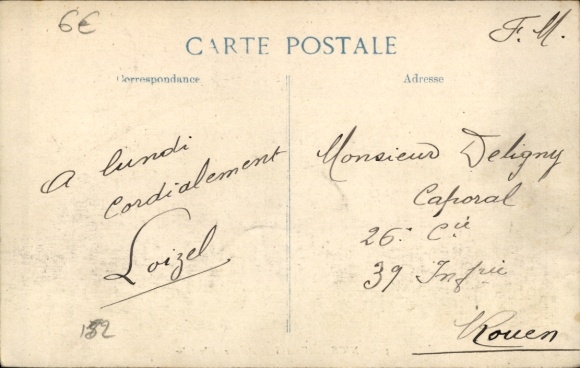 6€
F. M.
CARTE POSTALE
Correspondance
Adresse
A lundi
cordialement
Loizel
Monsieur Deligny
Caporal
26e Cie
39 Infrie
Rouen
152